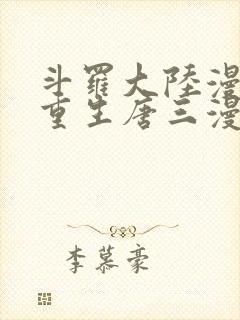 斗羅大陸漫
重生唐三漫
李慕豪